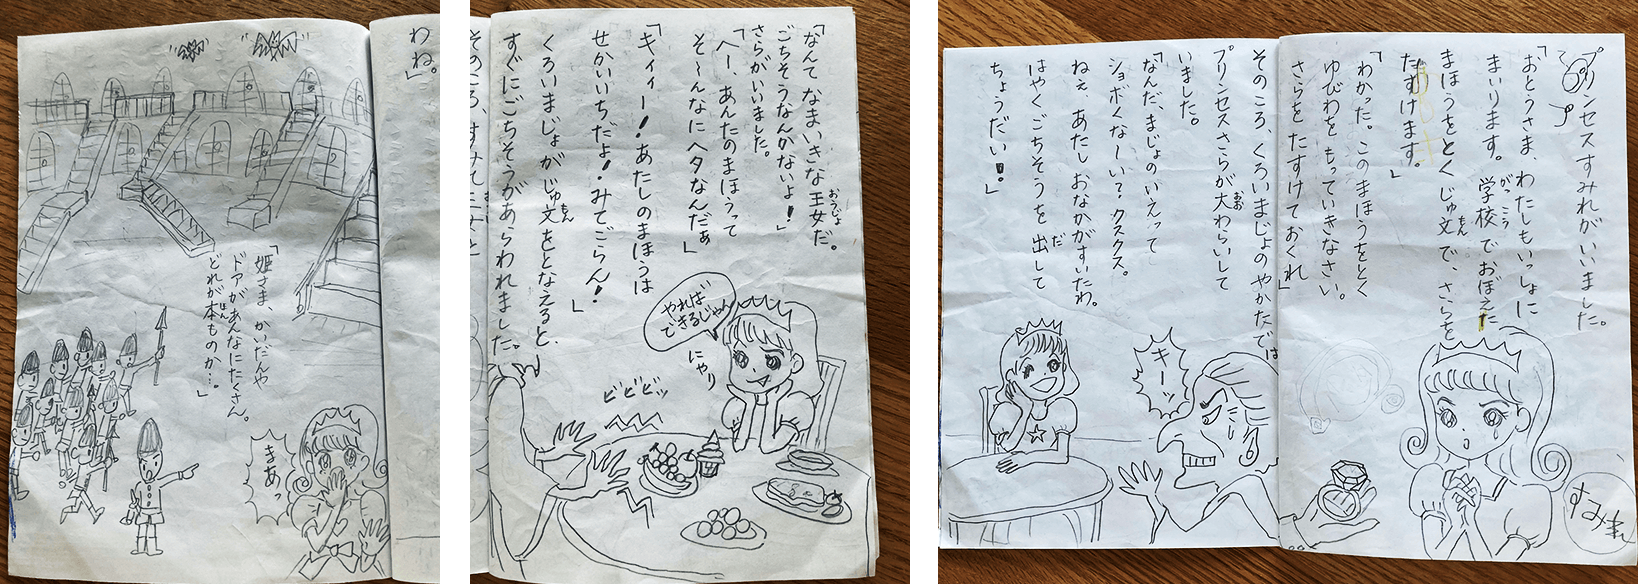 わね。」
「姫さま、かいだんや
ドアがあんなにたくさん。
どれが本ものか…。」
まあっ
「なんてなまいきな王女だ。
ごちそうなんかないよ!」
さらがいいました。
「へー、あんたのまほうって
そ〜んなにヘタなんだぁ」
「キィィー!あたしのまほうは
せかいいちだよ!みてごらん!」
くろいまじょがじゅ文をとなえると、
すぐにごちそうがあらわれました。
やればできるじゃん
にやり
ビビビッ
プリンセスすみれがいいました。
プ
「おとうさま、わたしもいっしょに
まいります。学校でおぼえた
まほうをとくじゅ文で、さらを
たすけます。」
「わかった。このまほうをとく
ゆびわをもっていきなさい。
さらをたすけておくれ」
すみれ
そのころ、くろいまじょのやかたでは
プリンセスさらが大わらいして
いました。
「なんだ、まじょのいえって
ショボくなーい?クスクス。
ねぇ あたしおなかがすいたわ。
はやくごちそうを出して
ちょうだい!。」
キーッ